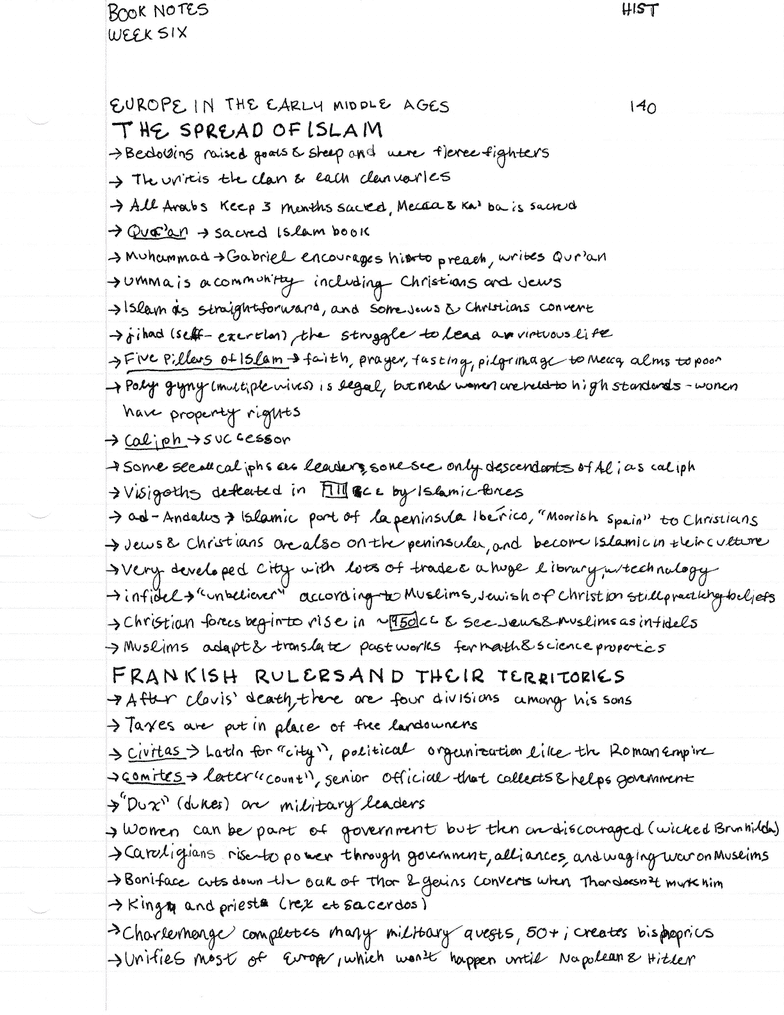 BOOK NOTES HIST
WEEK SIX
EUROPE IN THE EARLY MIDDLE AGES 140
THE SPREAD OF ISLAM
→ Bedouins raised goats & sheep and were fierce fighters
→ The unit is the clan & each clan varies
→ All Arabs keep 3 months sacred, Mecca & Ka'ba is sacred
→ Qur'an → sacred Islam book
→ Muhammad → Gabriel encourages him to preach, writes Qur'an
→ Umma is a community including Christians and Jews
→ Islam is straightforward, and some Jews & Christians convert
→ jihad (self-exertion), the struggle to lead a virtuous life
→ Five Pillers of Islam → faith, prayer, fasting, pilgrimage to Mecca, alms to poor
→ Polygyny (multiple wives) is legal, but women are held to high standards - women
have property rights
→ caliph → successor
→ Some see all caliphs as leaders, some see only descendants of Ali as caliph
→ Visigoths defeated in 711 CE by Islamic forces
→ ad-Andalus → Islamic part of la peninsula Iberico, "Moorish Spain" to Christians
→ Jews & Christians are also on the peninsula, and become Islamic in their culture
→ Very developed city with lots of trade & a huge library, w/technology
→ infidel → "unbeliever" according to Muslims, Jewish of Christian still practicing beliefs
→ Christian forces begin to rise in ~950 CE & see Jews & Muslims as infidels
→ Muslims adapt & translate past works for math & science properties
FRANKISH RULERS AND THEIR TERRITORIES
→ After Clovis' death, there are four divisions among his sons
→ Taxes are put in place of free landowners
→ civitas → Latin for "city", political organization like the Roman Empire
→ comites → later "count", senior official that collects & helps government
→ "Dux" (dukes) are military leaders
→ Women can be part of government but then are discouraged (wicked Brunhilda)
→ Caroligians rise to power through government, alliances, and waging war on Muslims
→ Boniface cuts down the oak of Thor & gains converts when Thor doesn't murk him
→ King and priest (rex et sacerdos)
→ Charlemange completes many military quests, 50+; creates bishoprics
→ Unifies most of Europe, which won't happen until Napolean & Hitler